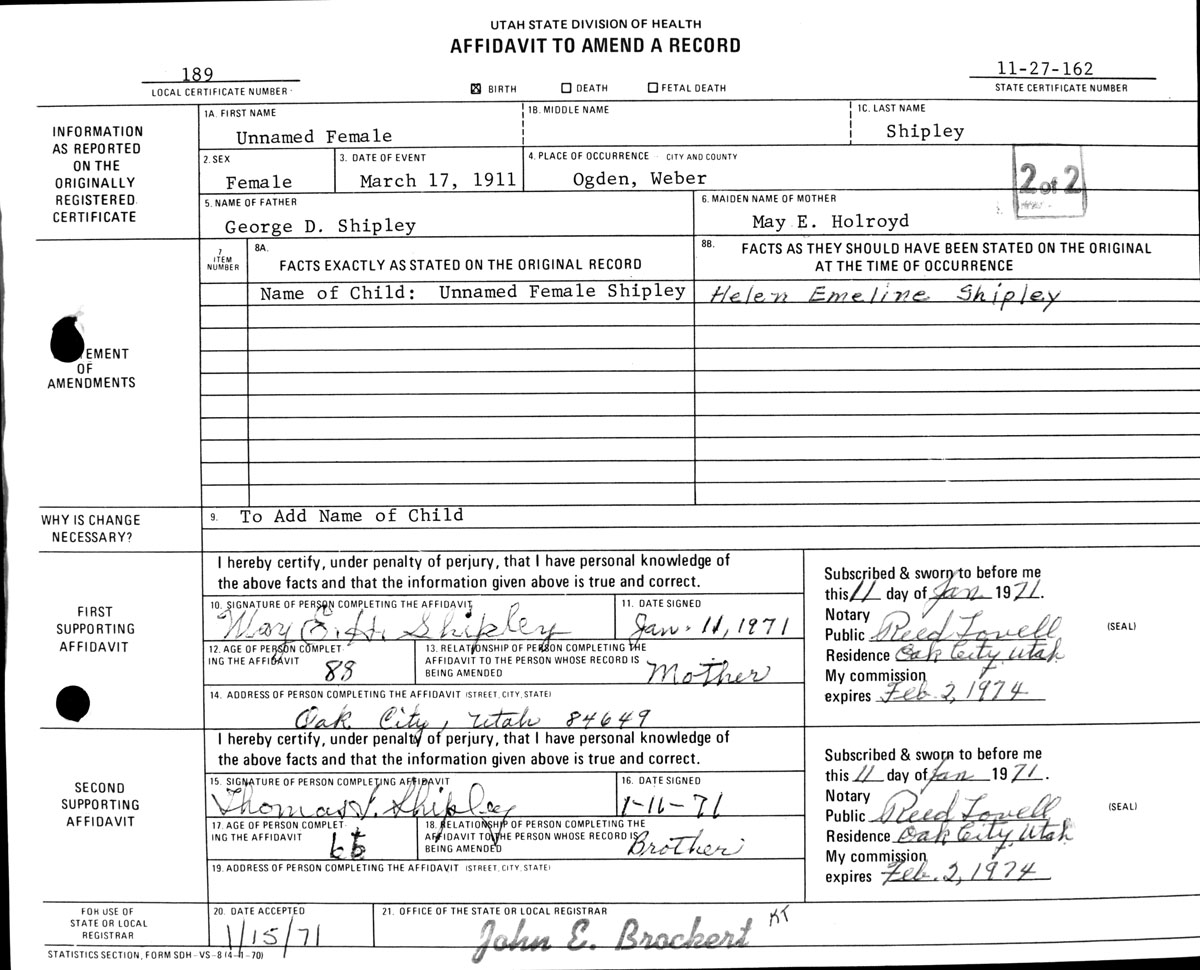 UTAH STATE DIVISION OF HEALTH
AFFIDAVIT TO AMEND A RECORD
189
LOCAL CERTIFICATE NUMBER
☒ BIRTH ☐ DEATH ☐ FETAL DEATH
11-27-162
STATE CERTIFICATE NUMBER
INFORMATION
AS REPORTED
ON THE
ORIGINALLY
REGISTERED
CERTIFICATE
1A. FIRST NAME
Unnamed Female
1B. MIDDLE NAME
1C. LAST NAME
Shipley
2. SEX
Female
3. DATE OF EVENT
March 17, 1911
4. PLACE OF OCCURRENCE - CITY AND COUNTY
Ogden, Weber
2 of 2
5. NAME OF FATHER
George D. Shipley
6. MAIDEN NAME OF MOTHER
May E. Holroyd
EMENT
OF
AMENDMENTS
7
ITEM
NUMBER
8A.
FACTS EXACTLY AS STATED ON THE ORIGINAL RECORD
8B. FACTS AS THEY SHOULD HAVE BEEN STATED ON THE ORIGINAL
AT THE TIME OF OCCURRENCE
Name of Child: Unnamed Female Shipley
Helen Emeline Shipley
WHY IS CHANGE
NECESSARY?
9. To Add Name of Child
FIRST
SUPPORTING
AFFIDAVIT
I hereby certify, under penalty of perjury, that I have personal knowledge of
the above facts and that the information given above is true and correct.
10. SIGNATURE OF PERSON COMPLETING THE AFFIDAVIT
May E. H. Shipley
11. DATE SIGNED
Jan. 11, 1971
12. AGE OF PERSON COMPLET-
ING THE AFFIDAVIT
88
13. RELATIONSHIP OF PERSON COMPLETING THE
AFFIDAVIT TO THE PERSON WHOSE RECORD IS
BEING AMENDED
Mother
14. ADDRESS OF PERSON COMPLETING THE AFFIDAVIT (STREET, CITY, STATE)
Oak City, Utah 84649
Subscribed & sworn to before me
this 11 day of Jan 1971.
Notary
Public Reed Lovell
Residence Oak City, Utah
My commission
expires Feb. 2, 1974
(SEAL)
SECOND
SUPPORTING
AFFIDAVIT
I hereby certify, under penalty of perjury, that I have personal knowledge of
the above facts and that the information given above is true and correct.
15. SIGNATURE OF PERSON COMPLETING AFFIDAVIT
Thomas J. Shipley
16. DATE SIGNED
1-11-71
17. AGE OF PERSON COMPLET-
ING THE AFFIDAVIT
18. RELATIONSHIP OF PERSON COMPLETING THE
AFFIDAVIT TO THE PERSON WHOSE RECORD IS
BEING AMENDED
Brother
19. ADDRESS OF PERSON COMPLETING THE AFFIDAVIT (STREET, CITY, STATE)
Subscribed & sworn to before me
this 11 day of Jan 1971.
Notary
Public Reed Lovell
Residence Oak City, Utah
My commission
expires Feb. 2, 1974
(SEAL)
FOR USE OF
STATE OR LOCAL
REGISTRAR
20. DATE ACCEPTED
1/15/71
21. OFFICE OF THE STATE OR LOCAL REGISTRAR
John E. Brockert KT
STATISTICS SECTION, FORM SDH-VS-8 (4-1-70)